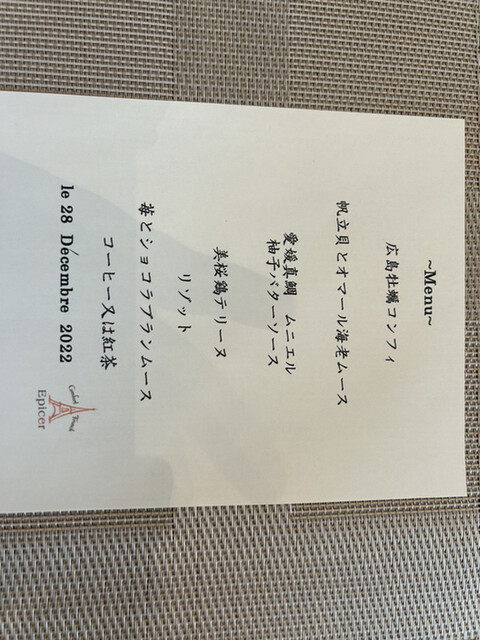 ~Menu~
広島牡蠣コンフィ
帆立貝とオマール海老ムース
愛媛真鯛 ムニエル
柚子バターソース
美桜鶏テリーヌ
リゾット
苺とショコラブランムース
コーヒー又は紅茶
le 28 Décembre 2022
Epicer